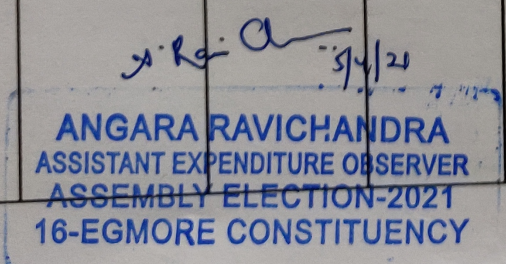 A. Ravi Ch
5/4/21
ANGARA RAVICHANDRA
ASSISTANT EXPENDITURE OBSERVER
ASSEMBLY ELECTION-2021
16-EGMORE CONSTITUENCY